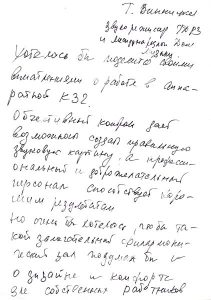 Т. Винницкая
звукорежиссер
и международной
Хотелось бы поделиться своими
впечатлениями о работе в аппа-
ратной КЗ2.
Объективный контроль дает
возможность создать правильную
звуковую картину, а професси-
ональный и доброжелательный
персонал способствует хоро-
шим результатам
Но очень бы хотелось, чтобы та-
кой замечательный филармони-
ческий зал подумал бы и
о дизайне и комфорте
для собственных работников